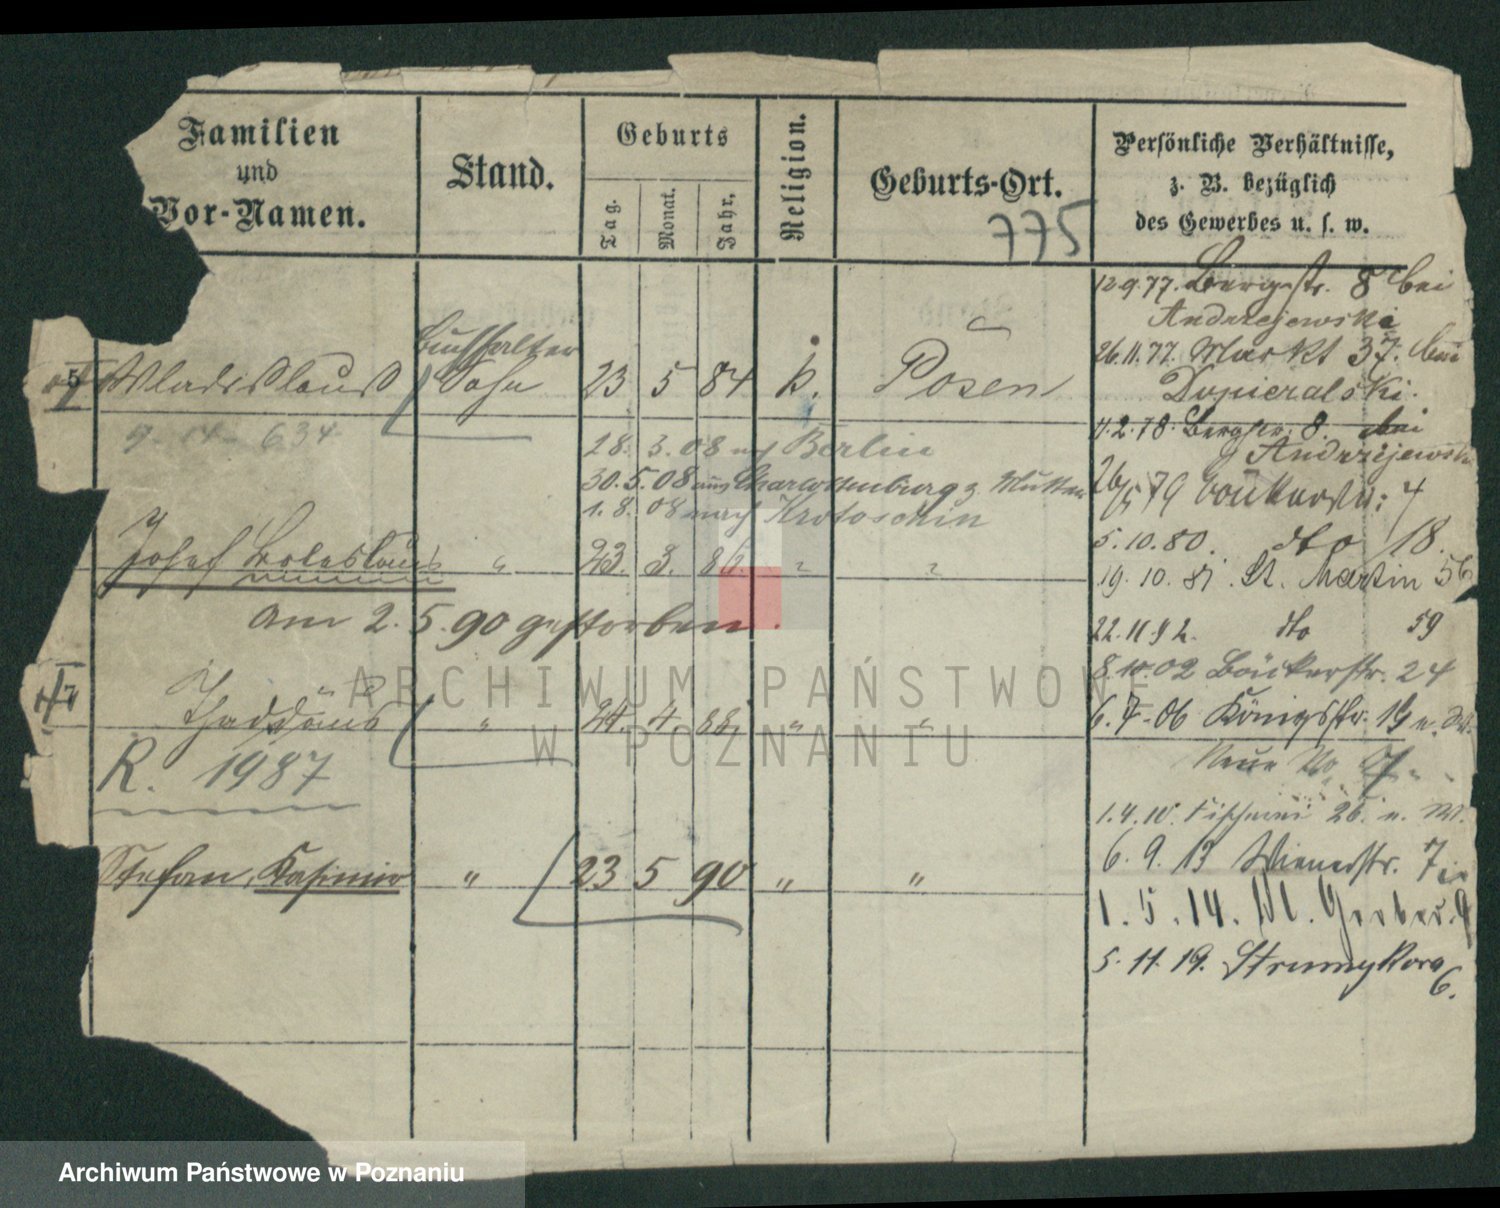 Familien
und
Vor-Namen.
Stand.
Geburts
Tag.
Monat.
Jahr,
Religion.
Geburts-Ort.
775
Persönliche Verhältnisse,
z. B. bezüglich
des Gewerbes u. s. w.
5
Wladislaus
Buchhalter
Sohn
23 5 84 k. Posen
28. 3. 08 n/ Berlin
30. 5. 08 aus Charlottenburg z. Mutter
1. 8. 08 nach Krotoschin
Josef Boleslaus " 23. 3. 86. " "
am 2. 5. 90 gestorben.
7
Thaddäus " 24. 4. 88. " "
R. 1987
Stefan, Kasimir " 23 5 90 " "
12.9.77. Bergstr. 8 bei
Andrzejewski
26.11.77. Markt 37. bei
Dopieralski.
11.2.78. Bergstr. 8. bei
Andrzejewski
26/5 79 Bäckerstr: 7
5.10.80. dto 18.
19.10.81. St. Martin 56
22.11.92. dto 59
8.10.02 Bäckerstr. 24
6.7.06 Königsstr. 19 n. W.
Neue No 7
1.4.10. Fischerei 26. n. W.
6.9.13 Wienerstr. 7
1.5.14. Kl. Gerber. 9
5.11.19. Strumykowa
6.
ARCHIWUM PAŃSTWOWE
W POZNANIU
Archiwum Państwowe w Poznaniu